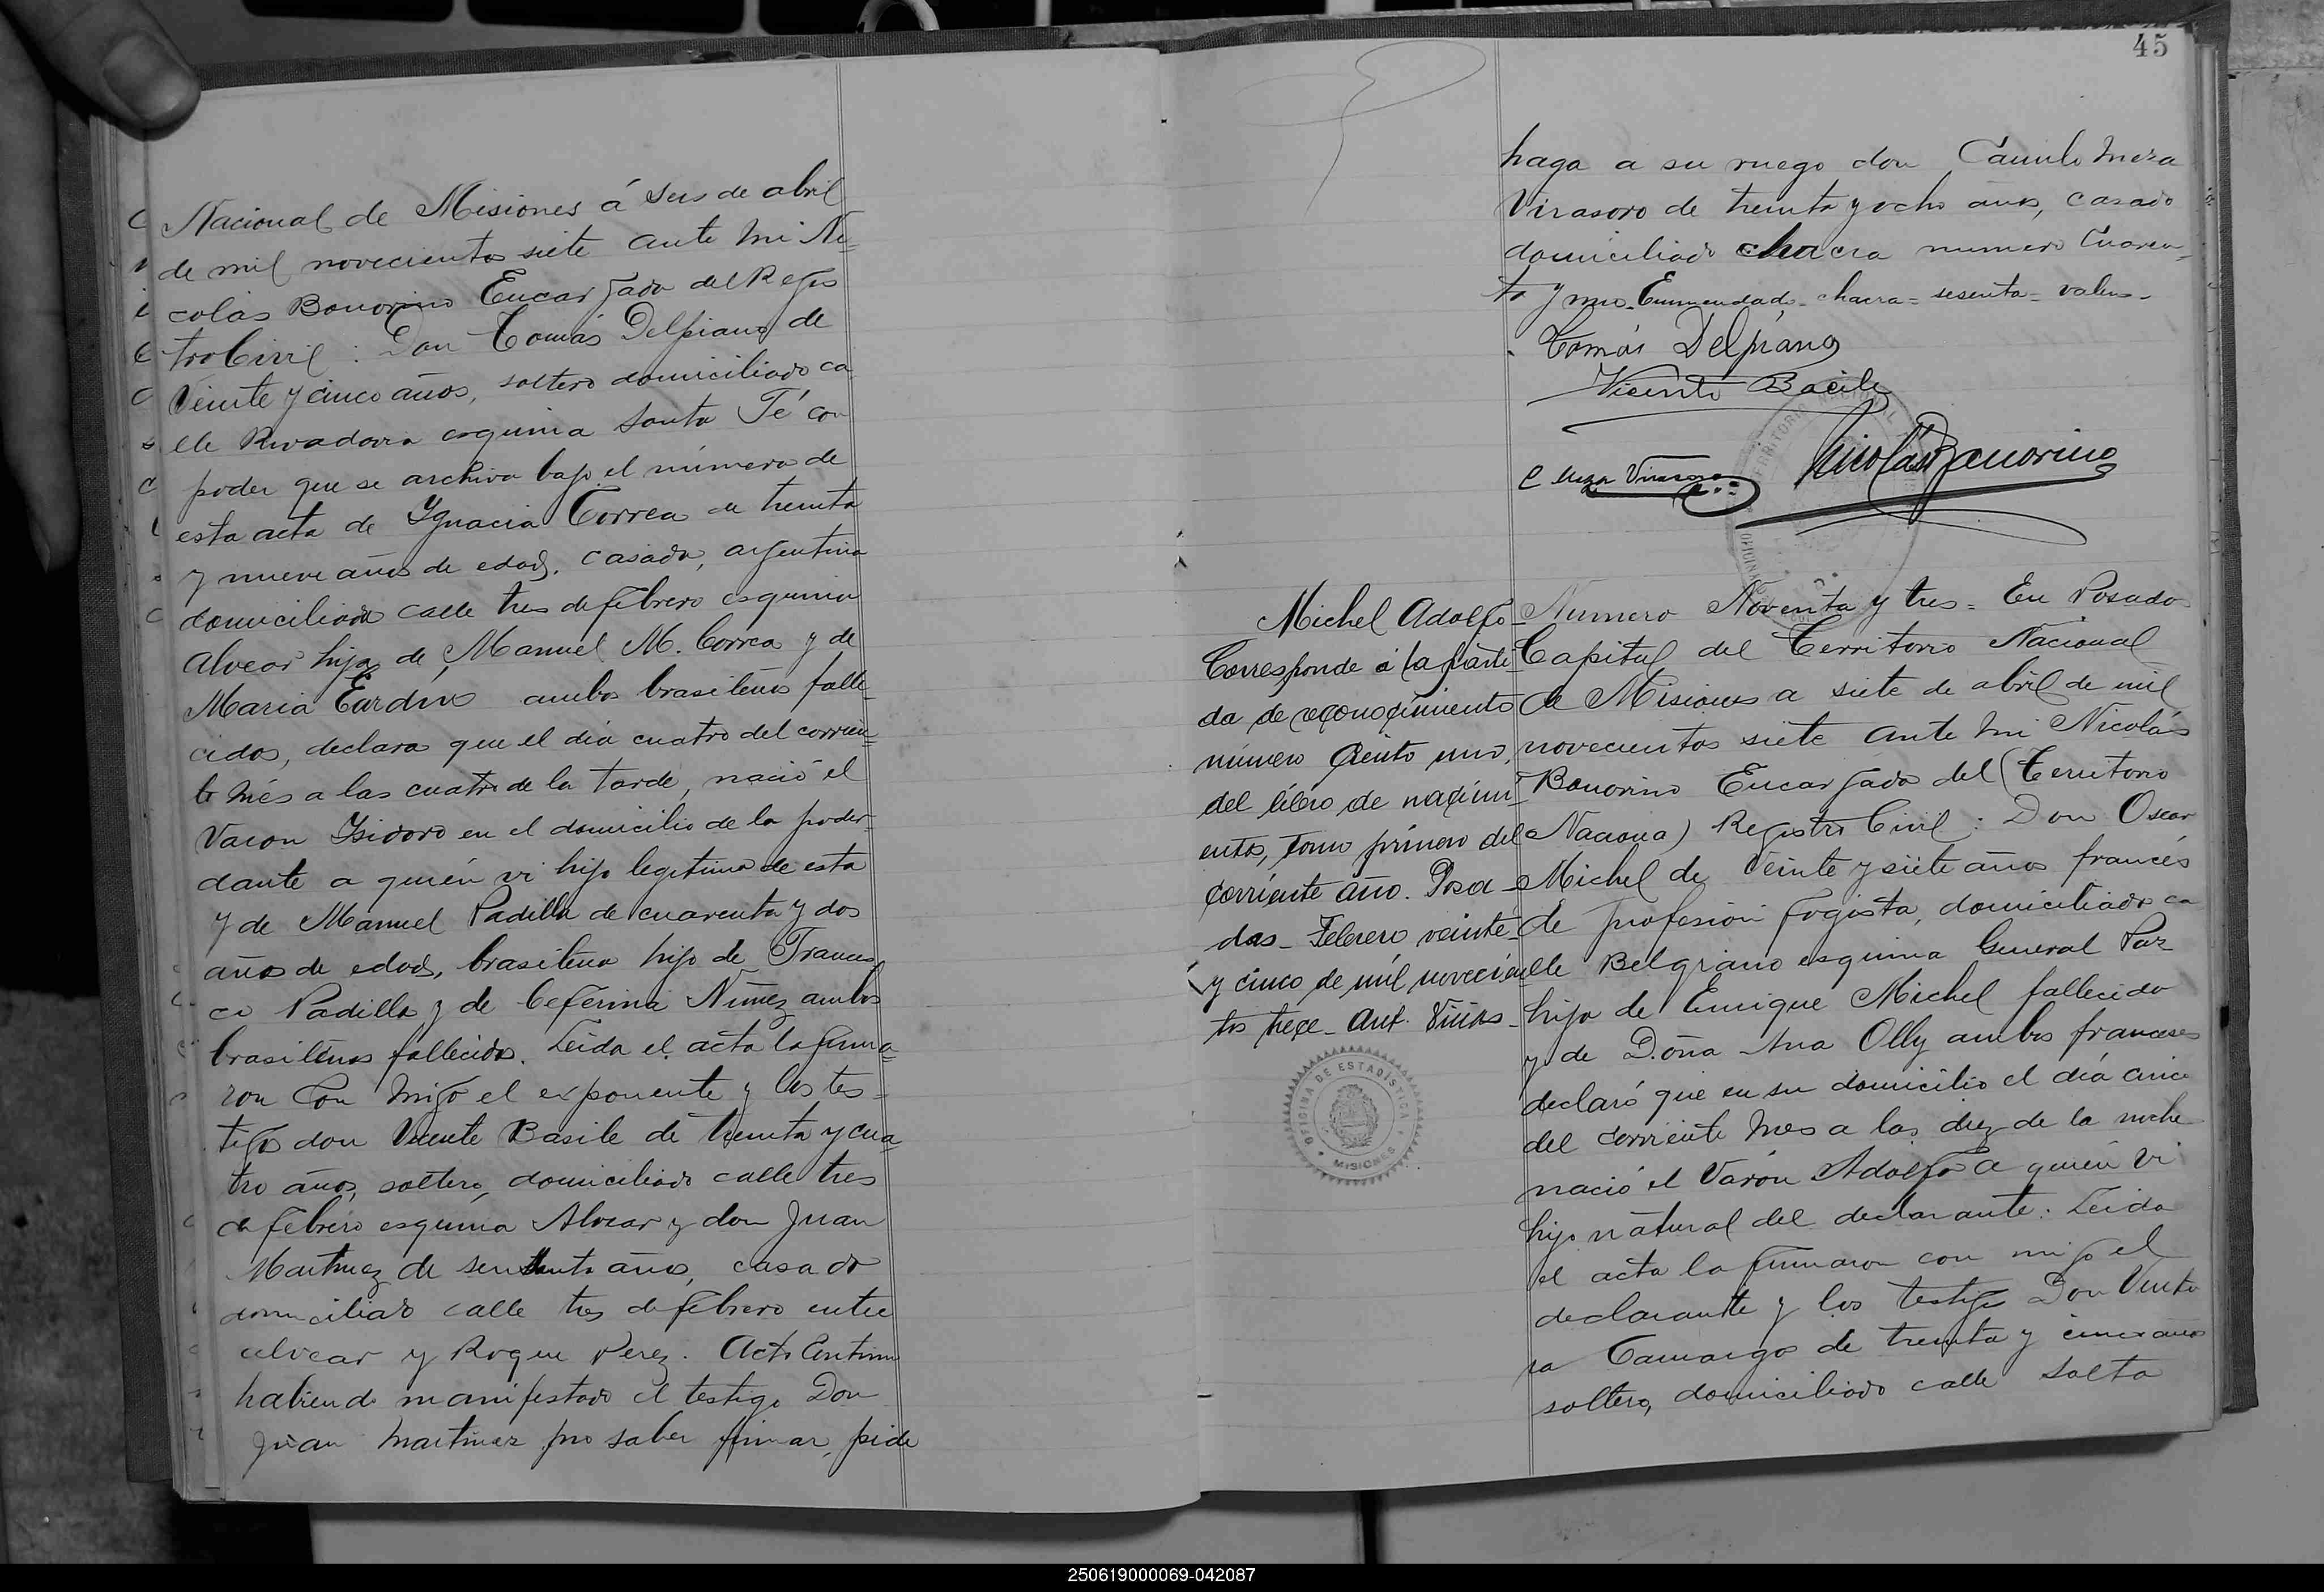 Nacional de Misiones á seis de abril
de mil novecientos siete ante mi Ni=
colás Bonorino Encargado del Regis
tro Civil : Don Tomás Delpiano de
veinte y cinco años, soltero domiciliado ca
lle Rivadavia esquina Santa Fé con
poder que se archiva bajo el número de
esta acta de Ygnacia Correa de treinta
y nueve años de edad, casada, argentina
domiciliada calle tres de febrero esquina
Alvear hija de Manuel M. Correa y de
Maria ambos brasileños falle_
cidos, declara que el dia cuatro del corrien=
te més a las cuatro de la tarde, nació el
Varon Ysidoro en el domicilio de la poder_
dante a quién vi hijo legitimo de esta
y de Manuel Padilla de cuarenta y dos
años de edad, brasileño hijo de Francis
co Padilla y de Ceferina Nuñez ambos
brasileños fallecidos. Leida el acta la firma=
ron con migo el exponente y los tes=
tigos don Vicente Basile de treinta y cua=
tro años, soltero, domiciliado calle tres
de febrero esquina Alvear y don Juan
Martinez de sesenta años, casado
domiciliado calle tres de febrero entre
alvear y Roque Perez. Acto
habiendo manifestado el testigo Don
Juan Martinez no saber firmar, pide
45
haga a su ruego don Camilo Meza
Virasoro de treinta y ocho años, casado
domiciliado chacra numero cuaren_
ta y uno_Enmendado_chacra=sesenta=valen_
Tomás Delpiano
Vicente Basile
C Meza Virasoro
Nicolás Bonorino
Michel Adolfo_
Corresponde á la parti_
da de reconocimiento
número ciento uno,
del libro de nacimi_
entos, tomo primero del
corriente año. Posa_
das_Febrero veinte_
y cinco de mil novecien
tos trece_Ant. Viñas_
OFICINA DE ESTADISTICA
MISIONES
Numero Noventa y tres = En Posadas
Capital del Territorio Nacional
de Misiones a siete de abril de mil
novecientos siete ante mi Nicolás
Bonorino Encargado del (Territorio
Naciona) Registro Civil : Don Oscar
Michel de veinte y siete años francés
de profesión fogista, domiciliado ca
lle Belgrano esquina General Paz
hijo de Enrique Michel fallecido
y de Doña Ana Olly ambos franceses
declaró que en su domicilio el día cinco
del corriente mes a las diez de la noche
nació el Varón Adolfo a quién vi
hijo natural del declarante. Leida
el acta la firmaron con migo el
declarante y los testigos Don Ventu
ra Camargo de treinta y cinco años
soltero, domiciliado calle Salta
250619000069-042087